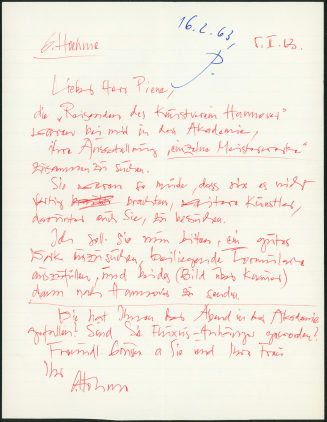 16.2.63,
P.
G. Hoehme
5.II.63.
Lieber Herr Piene,
die „Reisenden des Kunstverein Hannover“
waren bei mir in der Akademie,
ihre Ausstellung „einzelne Meisterwerke“
zusammen zu suchen.
Sie waren so müde, dass sie es nicht
fertig brachten, weitere Künstler,
darunter auch Sie, zu besuchen.
Ich soll Sie nun bitten, ein gutes
Werk auszusuchen, beiliegende Formulare
auszufüllen, und beides (Bild über Kaimer)
dann nach Hannover zu senden.
Wie hat Ihnen der Abend in der Akademie
gefallen? Sind Sie Fluxus-Anhänger geworden?
Freundl. Grüsse an Sie und Ihre Frau
Ihr
GHoehme